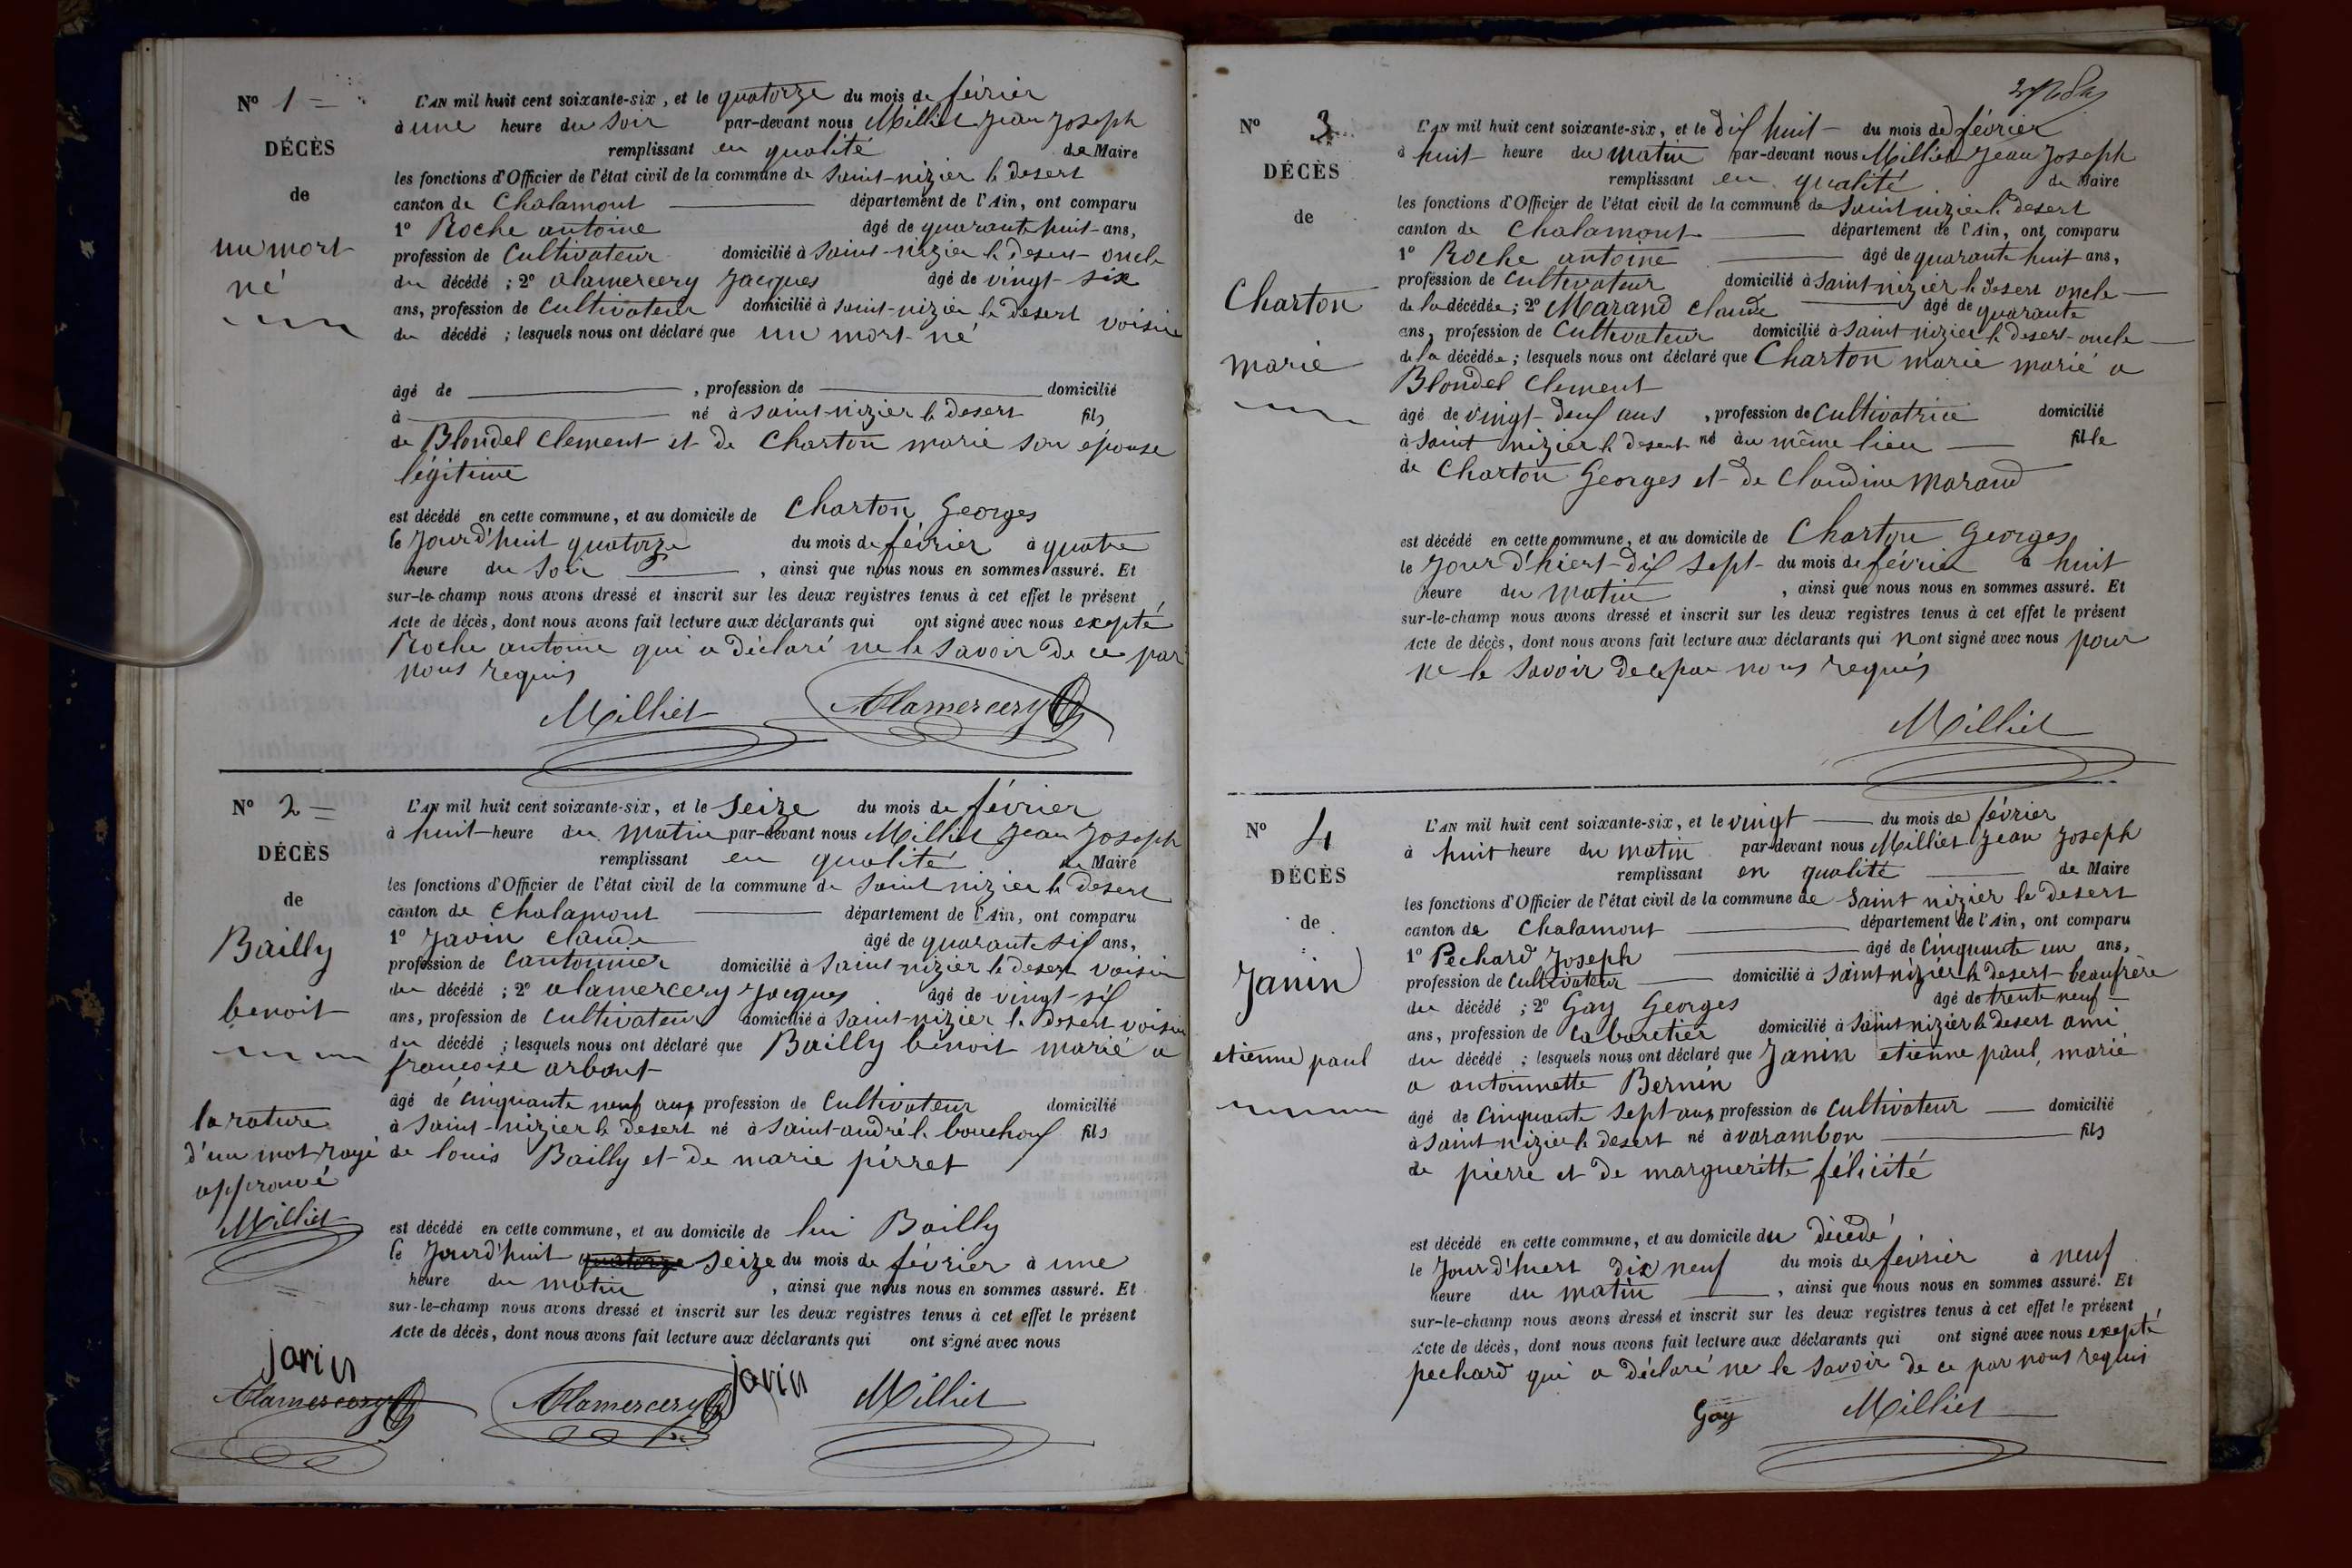 N° 1 =
DÉCÈS
de
un mort
né
L'AN mil huit cent soixante-six, et le quatorze du mois de février
à une heure du soir par-devant nous Milliet Jean Joseph
remplissant en qualité de Maire
les fonctions d'Officier de l'état civil de la commune de Saint-nizier le desert
canton de Chalamont département de l'Ain, ont comparu
1° Roche antoine âgé de quarante huit ans,
profession de Cultivateur domicilié à Saint-nizier le desert oncle
du décédé ; 2° alamercery Jacques âgé de vingt-six
ans, profession de Cultivateur domicilié à Saint-nizier le desert voisin
du décédé ; lesquels nous ont déclaré que un mort-né
âgé de , profession de domicilié
à né à Saint-nizier le desert fils
de Blondel Clement et de Charton marie son épouse
légitime
est décédé en cette commune, et au domicile de Charton Georges
le Jourd'huit quatorze du mois de février à quatre
heure du Soir , ainsi que nous nous en sommes assuré. Et
sur-le-champ nous avons dressé et inscrit sur les deux registres tenus à cet effet le présent
Acte de décès, dont nous avons fait lecture aux déclarants qui ont signé avec nous exepté
Roche antoine qui a déclaré ne le savoir de ce par
nous requis
Milliet Alamercery
N° 2 =
DÉCÈS
de
Bailly
benoit
la rature
d'un mot rayé
approuvé
Milliet
L'AN mil huit cent soixante-six, et le Seize du mois de février
à huit heure du matin par-devant nous Milliet Jean Joseph
remplissant en qualité de Maire
les fonctions d'Officier de l'état civil de la commune de Saint nizier le desert
canton de Chalamont département de l'Ain, ont comparu
1° Javin claude âgé de quarante six ans,
profession de Cantonnier domicilié à Saint nizier le desert voisin
du décédé ; 2° alamercery Jacques âgé de vingt-six
ans, profession de Cultivateur domicilié à Saint-nizier le desert voisin
du décédé ; lesquels nous ont déclaré que Bailly benoit marié a
françoise arbont
âgé de Cinquante neuf ans profession de Cultivateur domicilié
à Saint-nizier le desert né à Saint-andré le bouchoux fils
de louis Bailly et de marie pirret
est décédé en cette commune, et au domicile de lui Bailly
le Jourd'huit quatorze Seize du mois de février à une
heure du matin , ainsi que nous nous en sommes assuré. Et
sur-le-champ nous avons dressé et inscrit sur les deux registres tenus à cet effet le présent
Acte de décès, dont nous avons fait lecture aux déclarants qui ont signé avec nous
javin
Alamercery Alamercery javin Milliet
N° 3
DÉCÈS
de
Charton
marie
L'AN mil huit cent soixante-six, et le dix huit du mois de février
à huit heure du matin par-devant nous Milliet Jean Joseph
remplissant en qualité de Maire
les fonctions d'Officier de l'état civil de la commune de Saint nizier le desert
canton de Chalamont département de l'Ain, ont comparu
1° Roche antoine âgé de quarante huit ans,
profession de Cultivateur domicilié à Saint-nizier le desert oncle
de la décédée ; 2° Marand claude âgé de quarante
ans, profession de Cultivateur domicilié à Saint nizier le desert oncle
de la décédée ; lesquels nous ont déclaré que Charton marie marié a
Blondel Clement
âgé de vingt-deux ans , profession de Cultivatrice domicilié
à Saint nizier le desert né au même lieu fille
de Charton Georges et de Claudine Marand
est décédé en cette commune, et au domicile de Charton Georges
le Jour d'hiert dix sept du mois de février à huit
heure du matin , ainsi que nous nous en sommes assuré. Et
sur-le-champ nous avons dressé et inscrit sur les deux registres tenus à cet effet le présent
Acte de décès, dont nous avons fait lecture aux déclarants qui n'ont signé avec nous pour
ne le savoir de ce par nous requis
Milliet
N° 4
DÉCÈS
de
Janin
etienne paul
L'AN mil huit cent soixante-six, et le vingt du mois de février
à huit heure du matin par-devant nous Milliet Jean Joseph
remplissant en qualité de Maire
les fonctions d'Officier de l'état civil de la commune de Saint nizier le desert
canton de Chalamont département de l'Ain, ont comparu
1° Pechard Joseph âgé de Cinquante un ans,
profession de Cultivateur domicilié à Saint nizier le desert beaufrère
du décédé ; 2° Gay Georges âgé de trente neuf
ans, profession de Cabaretier domicilié à Saint nizier le desert ami
du décédé ; lesquels nous ont déclaré que Janin etienne paul, marié
a antoinnette Bernin
âgé de Cinquante Sept ans profession de Cultivateur domicilié
à Saint-nizier le desert né à varambon fils
de pierre et de margueritte félicité
est décédé en cette commune, et au domicile du décédé
le Jour d'hiert dix neuf du mois de février à neuf
heure du matin , ainsi que nous nous en sommes assuré. Et
sur-le-champ nous avons dressé et inscrit sur les deux registres tenus à cet effet le présent
Acte de décès, dont nous avons fait lecture aux déclarants qui ont signé avec nous exepté
pechard qui a déclaré ne le savoir de ce par nous requis
Gay Milliet